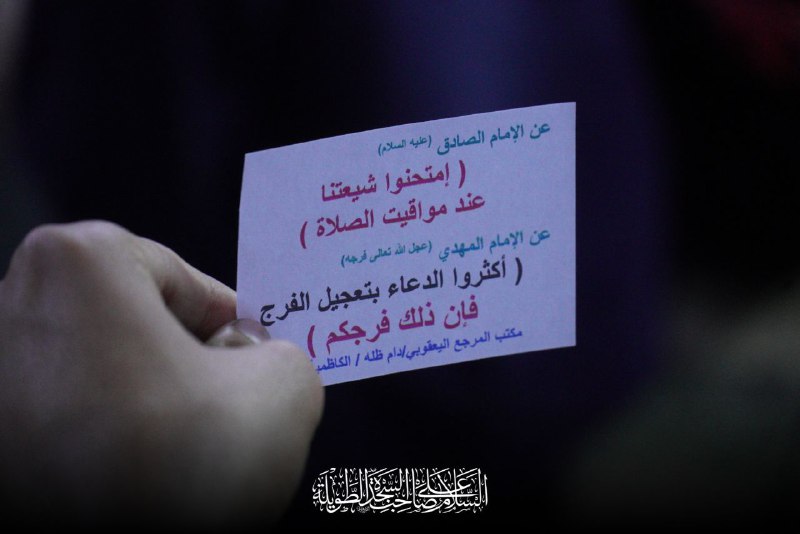 عن الإمام الصادق (عليه السلام)
( إمتحنوا شيعتنا
عند مواقيت الصلاة )
عن الإمام المهدي (عجل الله تعالى فرجه)
( أكثروا الدعاء بتعجيل الفرج
فإن ذلك فرجكم )
مكتب المرجع اليعقوبي/دام ظله / الكاظمي
السَّلامُ عَلى صَاحِبِ السَّجْدَةِ الطَّوِيلَة